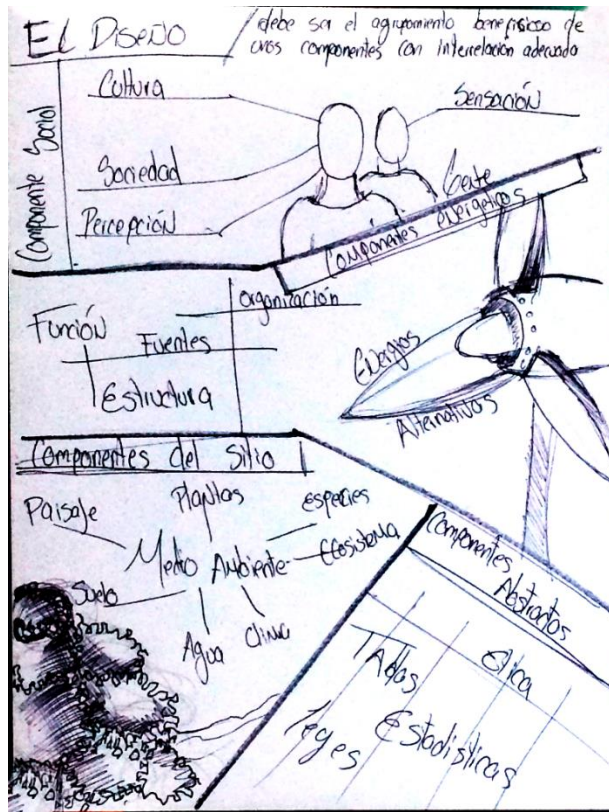 El Diseño
debe ser el agrupamiento benefisioso de
unos componentes con interrelación adecuada
Componente Social
Cultura
Sensación
Sociedad
Percepción
Gente
Componentes energéticos
Función
organización
Fuentes
Estructura
Energias
Alternativas
Componentes del sitio
Paisaje
Plantas
especies
Medio Ambiente
Ecosistema
Suelo
Agua
Clima
Componentes
Abstractos
Tablas
Etica
Leyes
Estadisticas